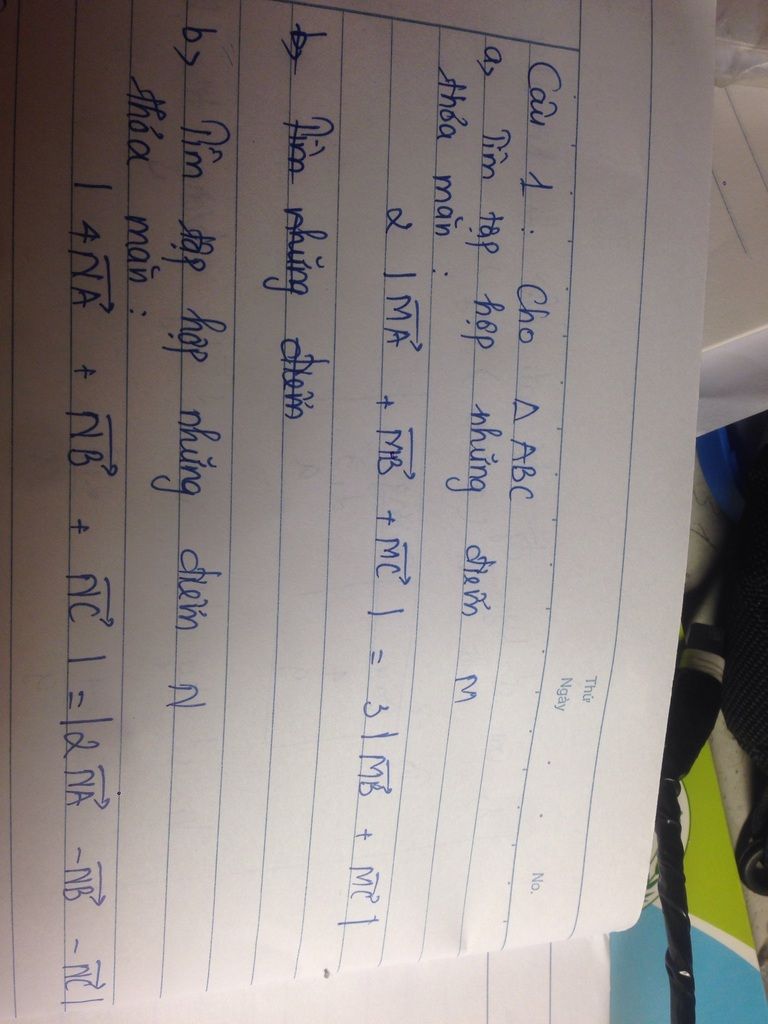 Thứ
Ngày
No.
Câu 1 : Cho Δ ABC
a, Tìm tập hợp những điểm M
thỏa mãn :
2 |MA→ + MB→ + MC→| = 3 |MB→ + MC→|
b, Tìm những điểm
b, Tìm tập hợp những điểm N
thỏa mãn :
|4NA→ + NB→ + NC→| = |2NA→ - NB→ - NC→|